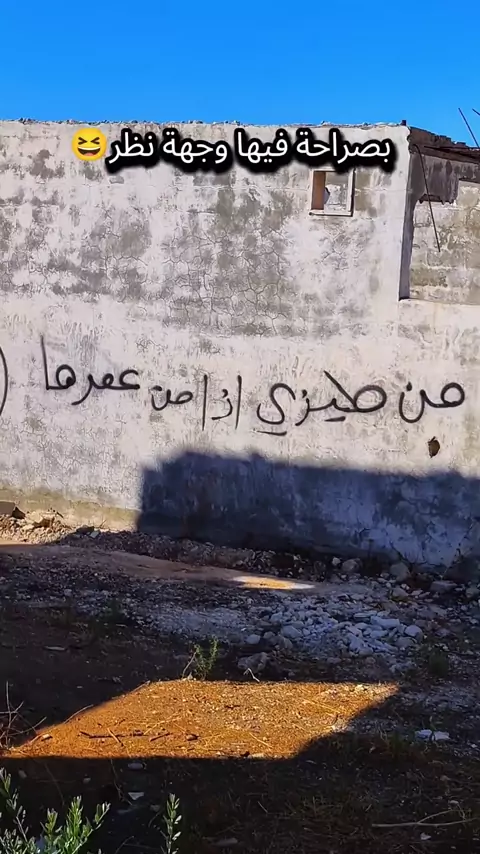 بصراحة فيها وجهة نظر😆
من طيزي اذا من عمرها